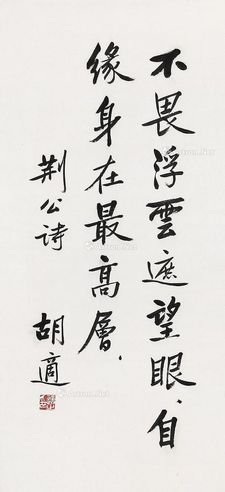 不畏浮雲遮望眼，自
緣身在最高層，
荆公诗
胡適